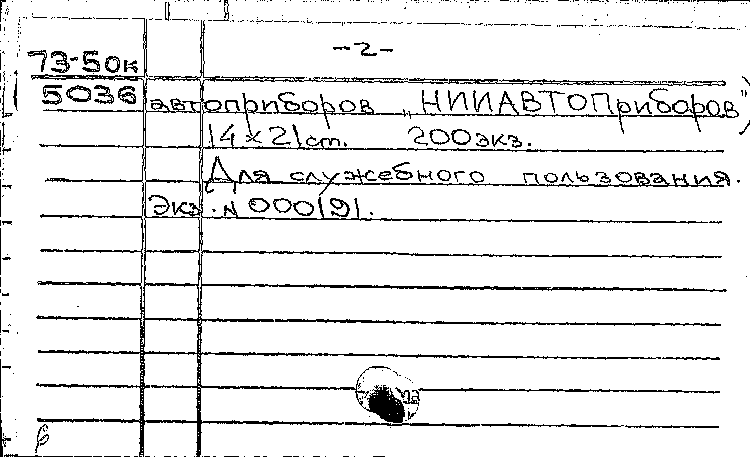 -2-
73-50к
5036 автоприборов „НИИАВТОПриборов")
14x21cm. 200экз.
Для служебного пользования.
Экз. N 000191.